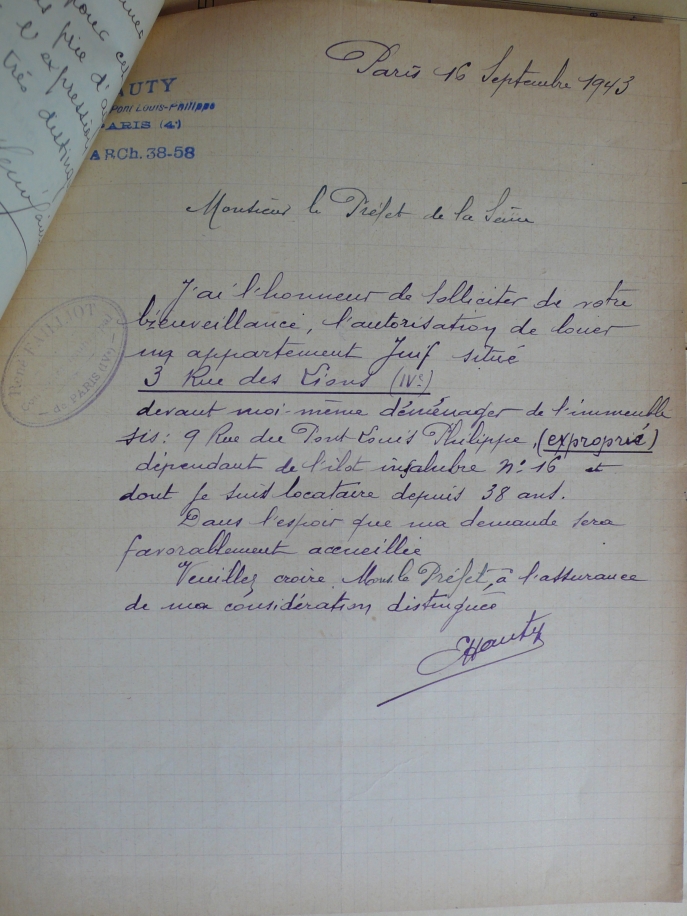 Paris 16 Septembre 1943
AUTY
Pont Louis-Philippe
PARIS (4e)
ARCh. 38-58
l'expression
très
Monsieur le Préfet de la Seine
J'ai l'honneur de solliciter de votre
bienveillance, l'autorisation de louer
un appartement Juif situé
3 Rue des Lions (IVe)
devant moi-même déménager de l'immeuble
sis : 9 Rue du Pont Louis Philippe, (exproprié)
dépendant de l'ilot insalubre n° 16 et
dont je suis locataire depuis 38 ans.
Dans l'espoir que ma demande sera
favorablement accueillie
Veuillez croire, Mons le Préfet, à l'assurance
de ma considération distinguée
Hauty
René FAILLIOT
de PARIS (IVe)